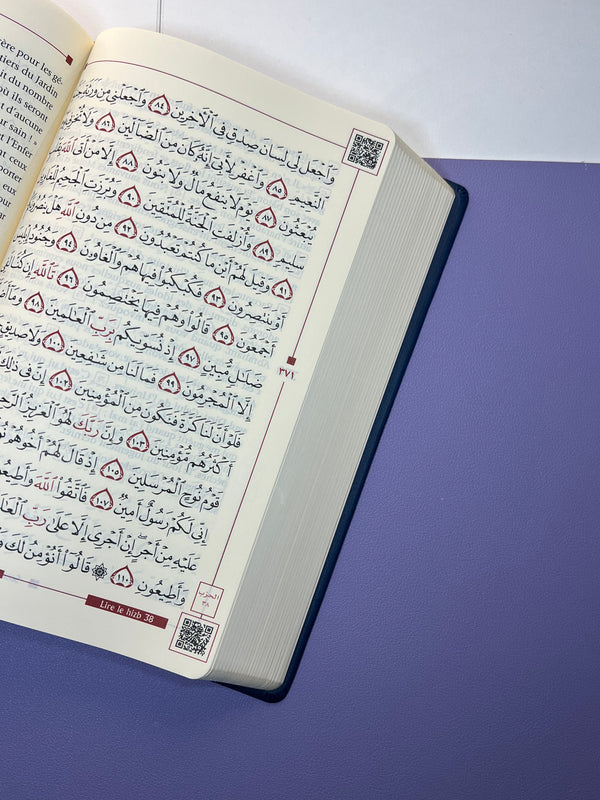 ère pour les gé-
tiers du Jardin
it du nombre
où ils seront
t d'aucune
r sain ! »
t l'Enfer
t ceux
porter
eux
our
وَٱجۡعَل لِّي لِسَانَ صِدۡقٖ فِي ٱلۡأٓخِرِينَ ٨٤ وَٱجۡعَلۡنِي مِن وَرَثَةِ
ٱلنَّعِيمِ ٨٥ وَٱغۡفِرۡ لِأَبِيٓ إِنَّهُۥ كَانَ مِنَ ٱلضَّآلِّينَ ٨٦ وَلَا تُخۡزِنِي
يُبۡعَثُونَ ٨٧ يَوۡمَ لَا يَنفَعُ مَالٞ وَلَا بَنُونَ ٨٨ إِلَّا مَنۡ أَتَى ٱللَّهَ
سَلِيمٖ ٨٩ وَأُزۡلِفَتِ ٱلۡجَنَّةُ لِلۡمُتَّقِينَ ٩٠ وَبُرِّزَتِ ٱلۡجَحِيمُ لِلۡغَاوِينَ
٩١ وَقِيلَ لَهُمۡ أَيۡنَ مَا كُنتُمۡ تَعۡبُدُونَ ٩٢ مِن دُونِ ٱللَّهِ هَلۡ يَنصُرُونَ
أَوۡ يَنتَصِرُونَ ٩٣ فَكُبۡكِبُواْ فِيهَا هُمۡ وَٱلۡغَاوُۥنَ ٩٤ وَجُنُودُ إِبۡلِيسَ
أَجۡمَعُونَ ٩٥ قَالُواْ وَهُمۡ فِيهَا يَخۡتَصِمُونَ ٩٦ تَٱللَّهِ إِن كُنَّا
ضَلَٰلٖ مُّبِينٍ ٩٧ إِذۡ نُسَوِّيكُم بِرَبِّ ٱلۡعَٰلَمِينَ ٩٨ وَمَآ
إِلَّا ٱلۡمُجۡرِمُونَ ٩٩ فَمَا لَنَا مِن شَٰفِعِينَ ١٠٠ وَلَا صَدِيقٍ
فَلَوۡ أَنَّ لَنَا كَرَّةٗ فَنَكُونَ مِنَ ٱلۡمُؤۡمِنِينَ ١٠٢ إِنَّ فِي ذَٰلِكَ
أَكۡثَرُهُم مُّؤۡمِنِينَ ١٠٣ وَإِنَّ رَبَّكَ لَهُوَ ٱلۡعَزِيزُ ٱلرَّح
قَوۡمُ نُوحٍ ٱلۡمُرۡسَلِينَ ١٠٥ إِذۡ قَالَ لَهُمۡ أَخُوهُمۡ
إِنِّي لَكُمۡ رَسُولٌ أَمِينٞ ١٠٧ فَٱتَّقُواْ ٱللَّهَ وَأَطِيعُ
عَلَيۡهِ مِنۡ أَجۡرٍۖ إِنۡ أَجۡرِيَ إِلَّا عَلَىٰ رَبِّ ٱلۡعَٰ
وَأَطِيعُونِ ١١٠ ۞ قَالُوٓاْ أَنُؤۡمِنُ لَكَ وَ
٣٧١
الحزب
٣٨
Lire le hizb 38